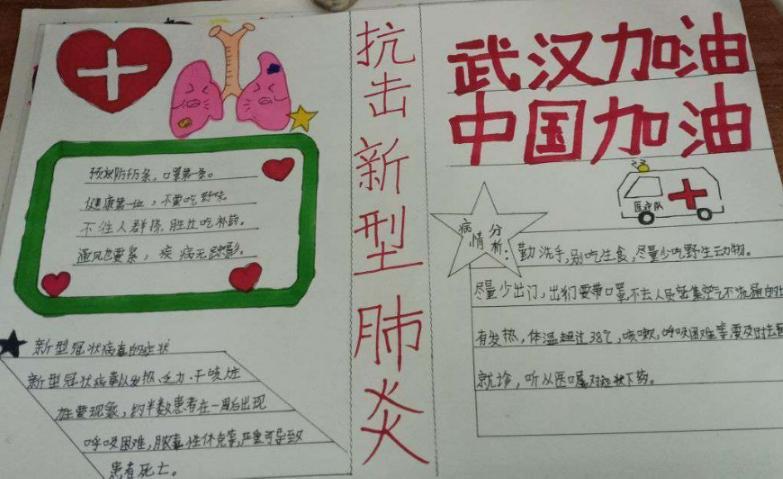 预防千万条，口罩第一条。
健康第一位，不要吃野味。
不往人群挤，胜过吃补药。
通风也要紧，疾病无踪影。
新型冠状病毒的症状
新型冠状病毒以发热、乏力、干咳为
主要现象，约半数患者在一周后出现
呼吸困难，脓毒性休克等，严重可导致
患者死亡。
抗击新型肺炎
武汉加油
中国加油
医疗队
病情分析：
勤洗手，别吃生食，尽量少吃野生动物。
尽量少出门，出门要带口罩，不去人员密集空气不流通的
有发热，体温超过38℃，咳嗽，呼吸困难等要及时去
就诊，听从医嘱对症状下药。